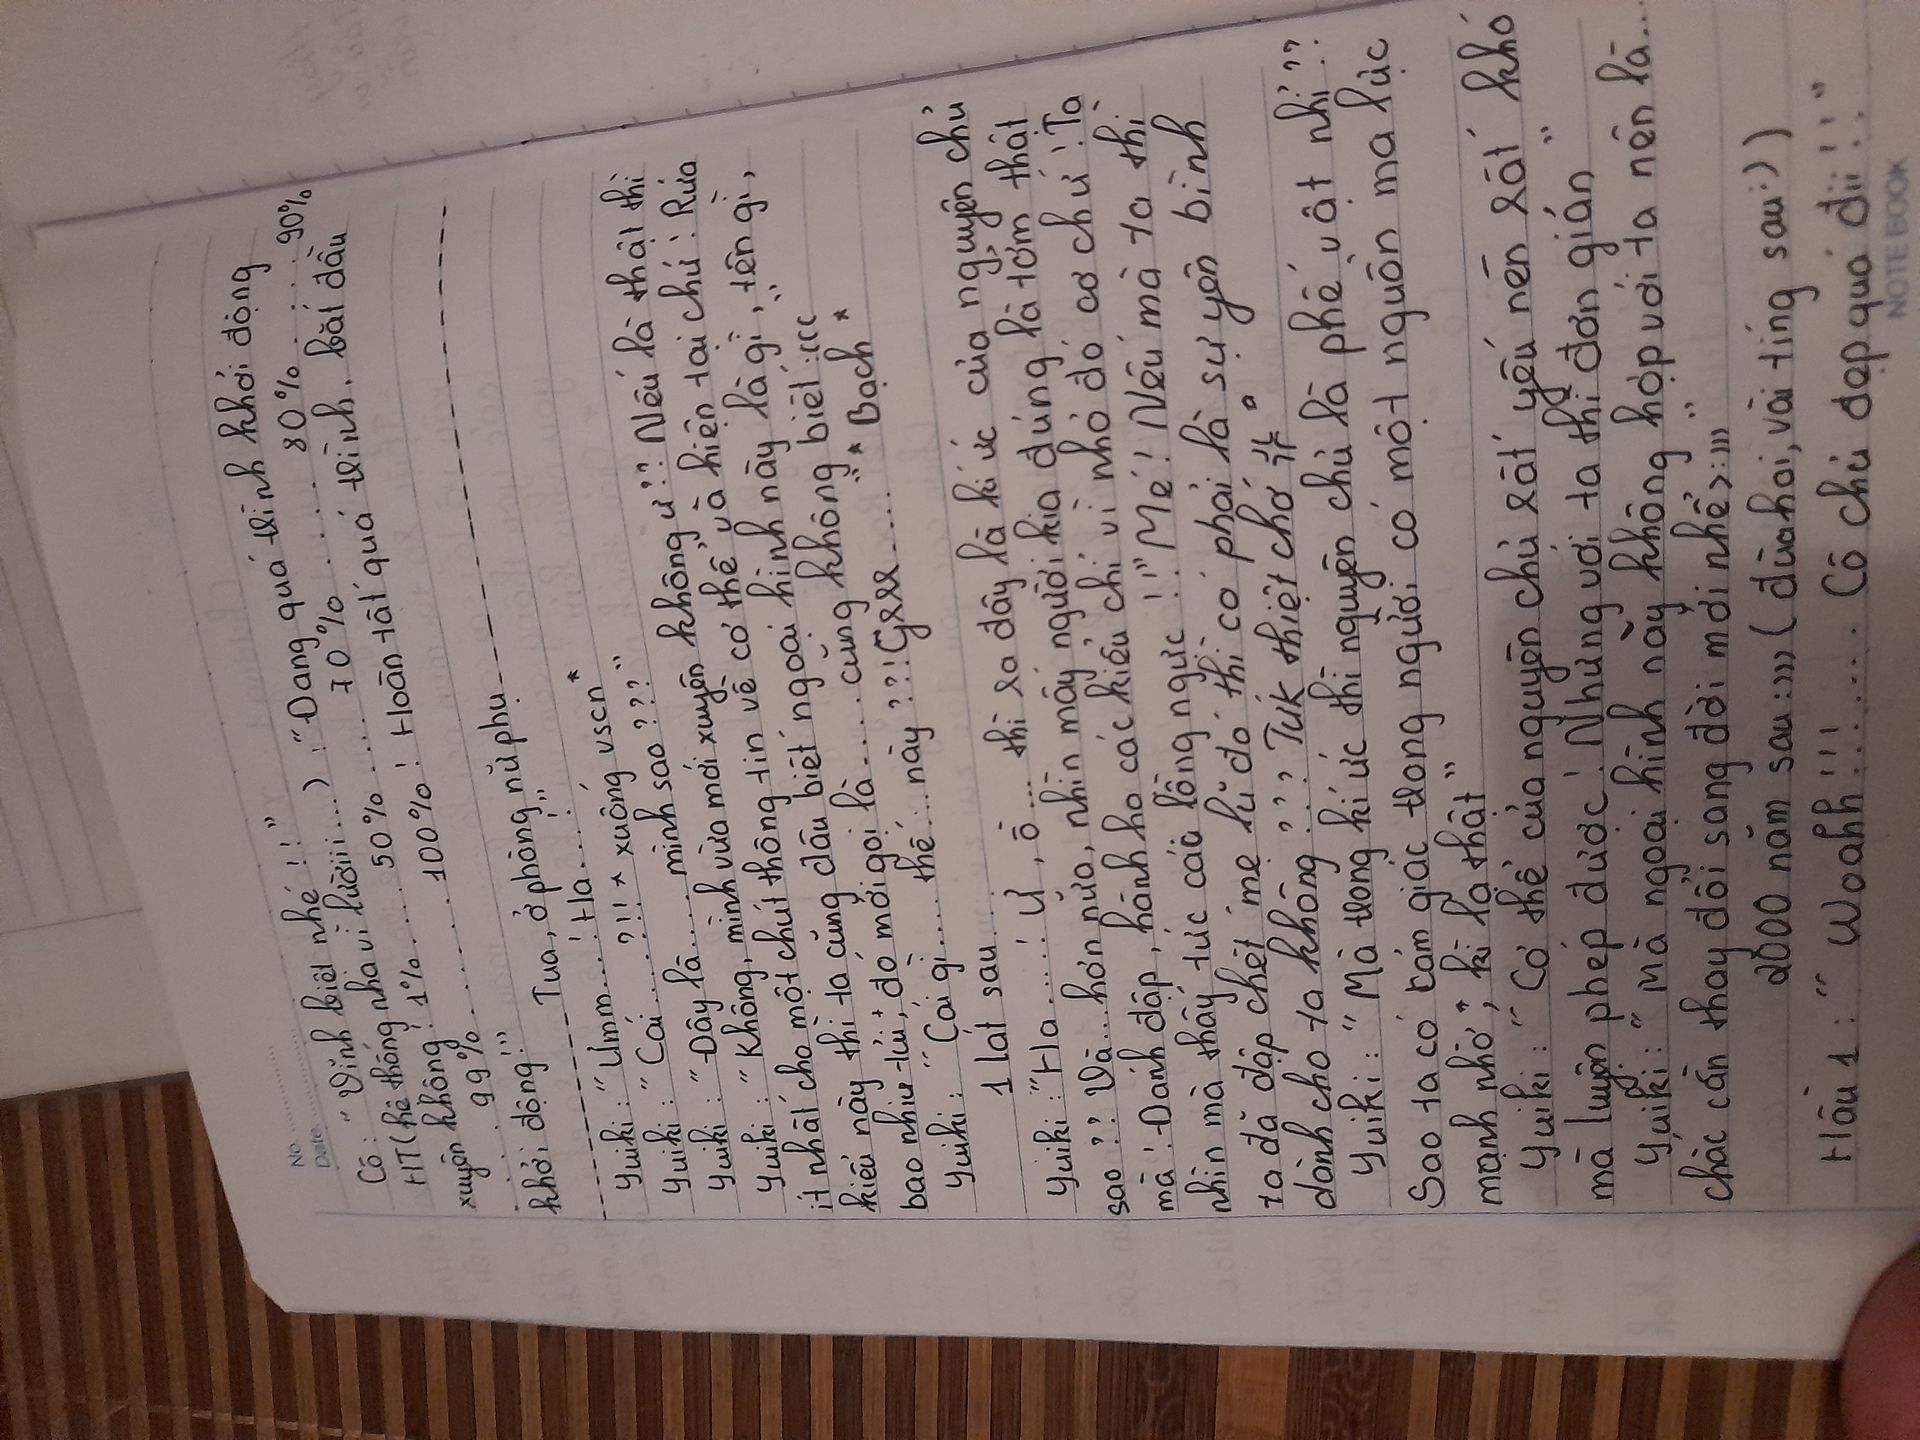 No
Date
Cô: "Vinh biệt nhé!!"
HT(hệ thống nha vì lườiii...) : "Đang quá trình khởi động
xuyên không! 1%.... 50% .... 70% ...... 80% ...... 90%
.... 99% ...... 100%! Hoàn tất quá trình, bắt đầu
khởi động!"
Tua, ở phòng nữ phụ
Yuiki: "Ưmm....! Ha....!"
Yuiki: "Cái....?!! * xuống vscn*
Yuiki: "Đây là..... mình sao???"
Yuiki: "Không, mình vừa mới xuyên không ư?! Nếu là thật thì
ít nhất cho một chút thông tin về cơ thể và hiện tại chứ! Rứa
kiểu này thì ta cũng đâu biết ngoại hình này là gì, tên gì,
bao nhiu tủi, đó mới gọi là.... cũng không biết :(((
Yuiki: "Cái gì ..... thế ... này ??!! Grrr..... " * Bạch *
1 lát sau
Yuiki: "Ha .....! Ư, ồ... thì ra đây là kí ức của nguyên chủ
sao?? Và... hơn nữa, nhìn mấy người kia đúng là tởm thật
mà! Đánh đập, hành hạ các kiểu chỉ vì nhỏ đó cơ chứ! Ta
nhìn mà thấy tức cái lồng ngực!!" Mé! Nếu mà ta thì
ta đã đập chết mẹ lũ đó thì có phải là sự yên bình
dành cho ta không??? Tuk thiệt chớ
Yuiki: "Mà trong kí ức thì nguyên chủ là phế vật nhỉ??
Sao ta có cảm giác trong người có một nguồn ma lực
mạnh nhờ", kì lạ thật"
Yuiki: "Cơ thể của nguyên chủ rất yếu nên rất khó
mà luyện phép được! Nhưng với ta thì đơn giản"
Yuiki: "Mà ngoại hình này không hợp với ta nên là...
chắc cần thay đổi sang đời mới nhể>:)))"
2000 năm sau:)))) (đùa hoi, vài tiếng sau:))
Hầu 1: "Woahh!!!.... Cô chủ đẹp quá đii!!"
NOTE BOOK